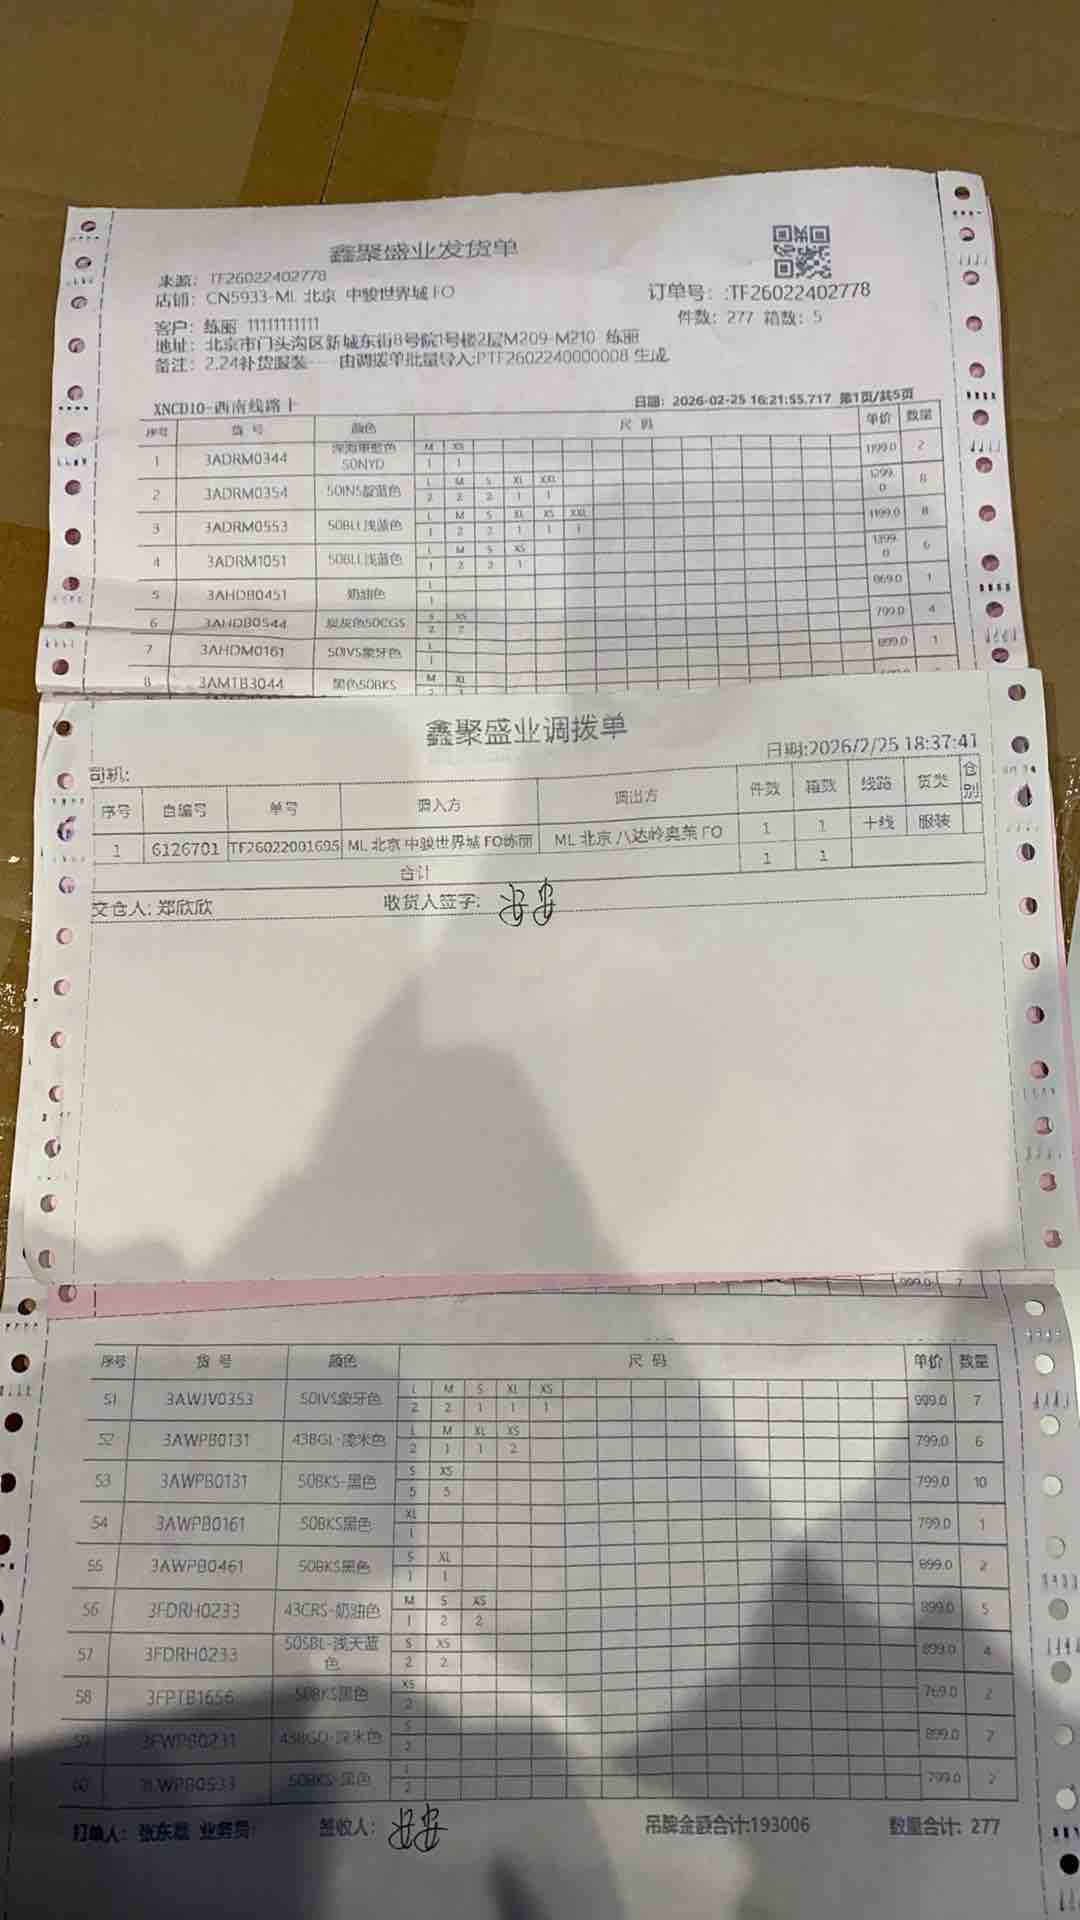 鑫聚盛业发货单
来源: TF26022402778
店铺: CN5933-ML 北京 中骏世界城 FO
订单号: :TF26022402778
客户: 练丽 11111111111
件数: 277 箱数: 5
地址: 北京市门头沟区新城东街8号院1号楼2层M209-M210 练丽
备注: 2.24补货服装---由调拨单批量导入:PTF2602240000008 生成
XNCD10-西南线路十
日期: 2026-02-25 16:21:55.717 第1页/共5页
序号 货 号 颜色 尺 码 单价 数量
1 3ADRM0344 深海军蓝色50NYD M XS 1199.0 2
1 1
2 3ADRM0354 50INS靛蓝色 L M S XL XXL 1299.0 8
2 2 2 1 1
3 3ADRM0553 50BLL浅蓝色 L M S XL XS XXL 1199.0 8
1 2 2 1 1 1
4 3ADRM1051 50BLL浅蓝色 L M S XS 1399.0 6
1 2 2 1
5 3AHDB0451 奶油色 L 869.0 1
1
6 3AHDB0544 炭灰色50CGS S XS 799.0 4
2 2
7 3AHDM0161 50IVS象牙色 L 899.0 1
1
8 3AMTB3044 黑色50BKS M XL
鑫聚盛业调拨单
日期:2026/2/25 18:37:41
司机:
序号 自编号 单号 调入方 调出方 件数 箱数 线路 货类 仓别
1 6126701 TF26022001695 ML 北京 中骏世界城 FO练丽 ML 北京 八达岭奥莱 FO 1 1 十线 服装
合计 1 1
交仓人: 郑欣欣 收货人签字:
999.0 7
序号 货 号 颜色 尺 码 单价 数量
51 3AWJV0353 50IVS象牙色 L M S XL XS 999.0 7
2 2 1 1 1
52 3AWPB0131 43BGL-浅米色 L M XL XS 799.0 6
2 1 1 2
53 3AWPB0131 50BKS-黑色 S XS 799.0 10
5 5
54 3AWPB0161 50BKS黑色 XL 799.0 1
1
55 3AWPB0461 50BKS黑色 S XL 899.0 2
1 1
56 3FDRH0233 43CRS-奶油色 M S XS 899.0 5
1 2 2
57 3FDRH0233 50SBL-浅天蓝色 S XS 899.0 4
2 2
58 3FPTB1656 50BKS黑色 XS 769.0 2
2
59 3FWPB0231 43BGD-深米色 S 899.0 2
2
60 50BKS-黑色 L 799.0 2
2
打单人: 业务员: 签收人: 吊牌金额合计:193006 数量合计: 277